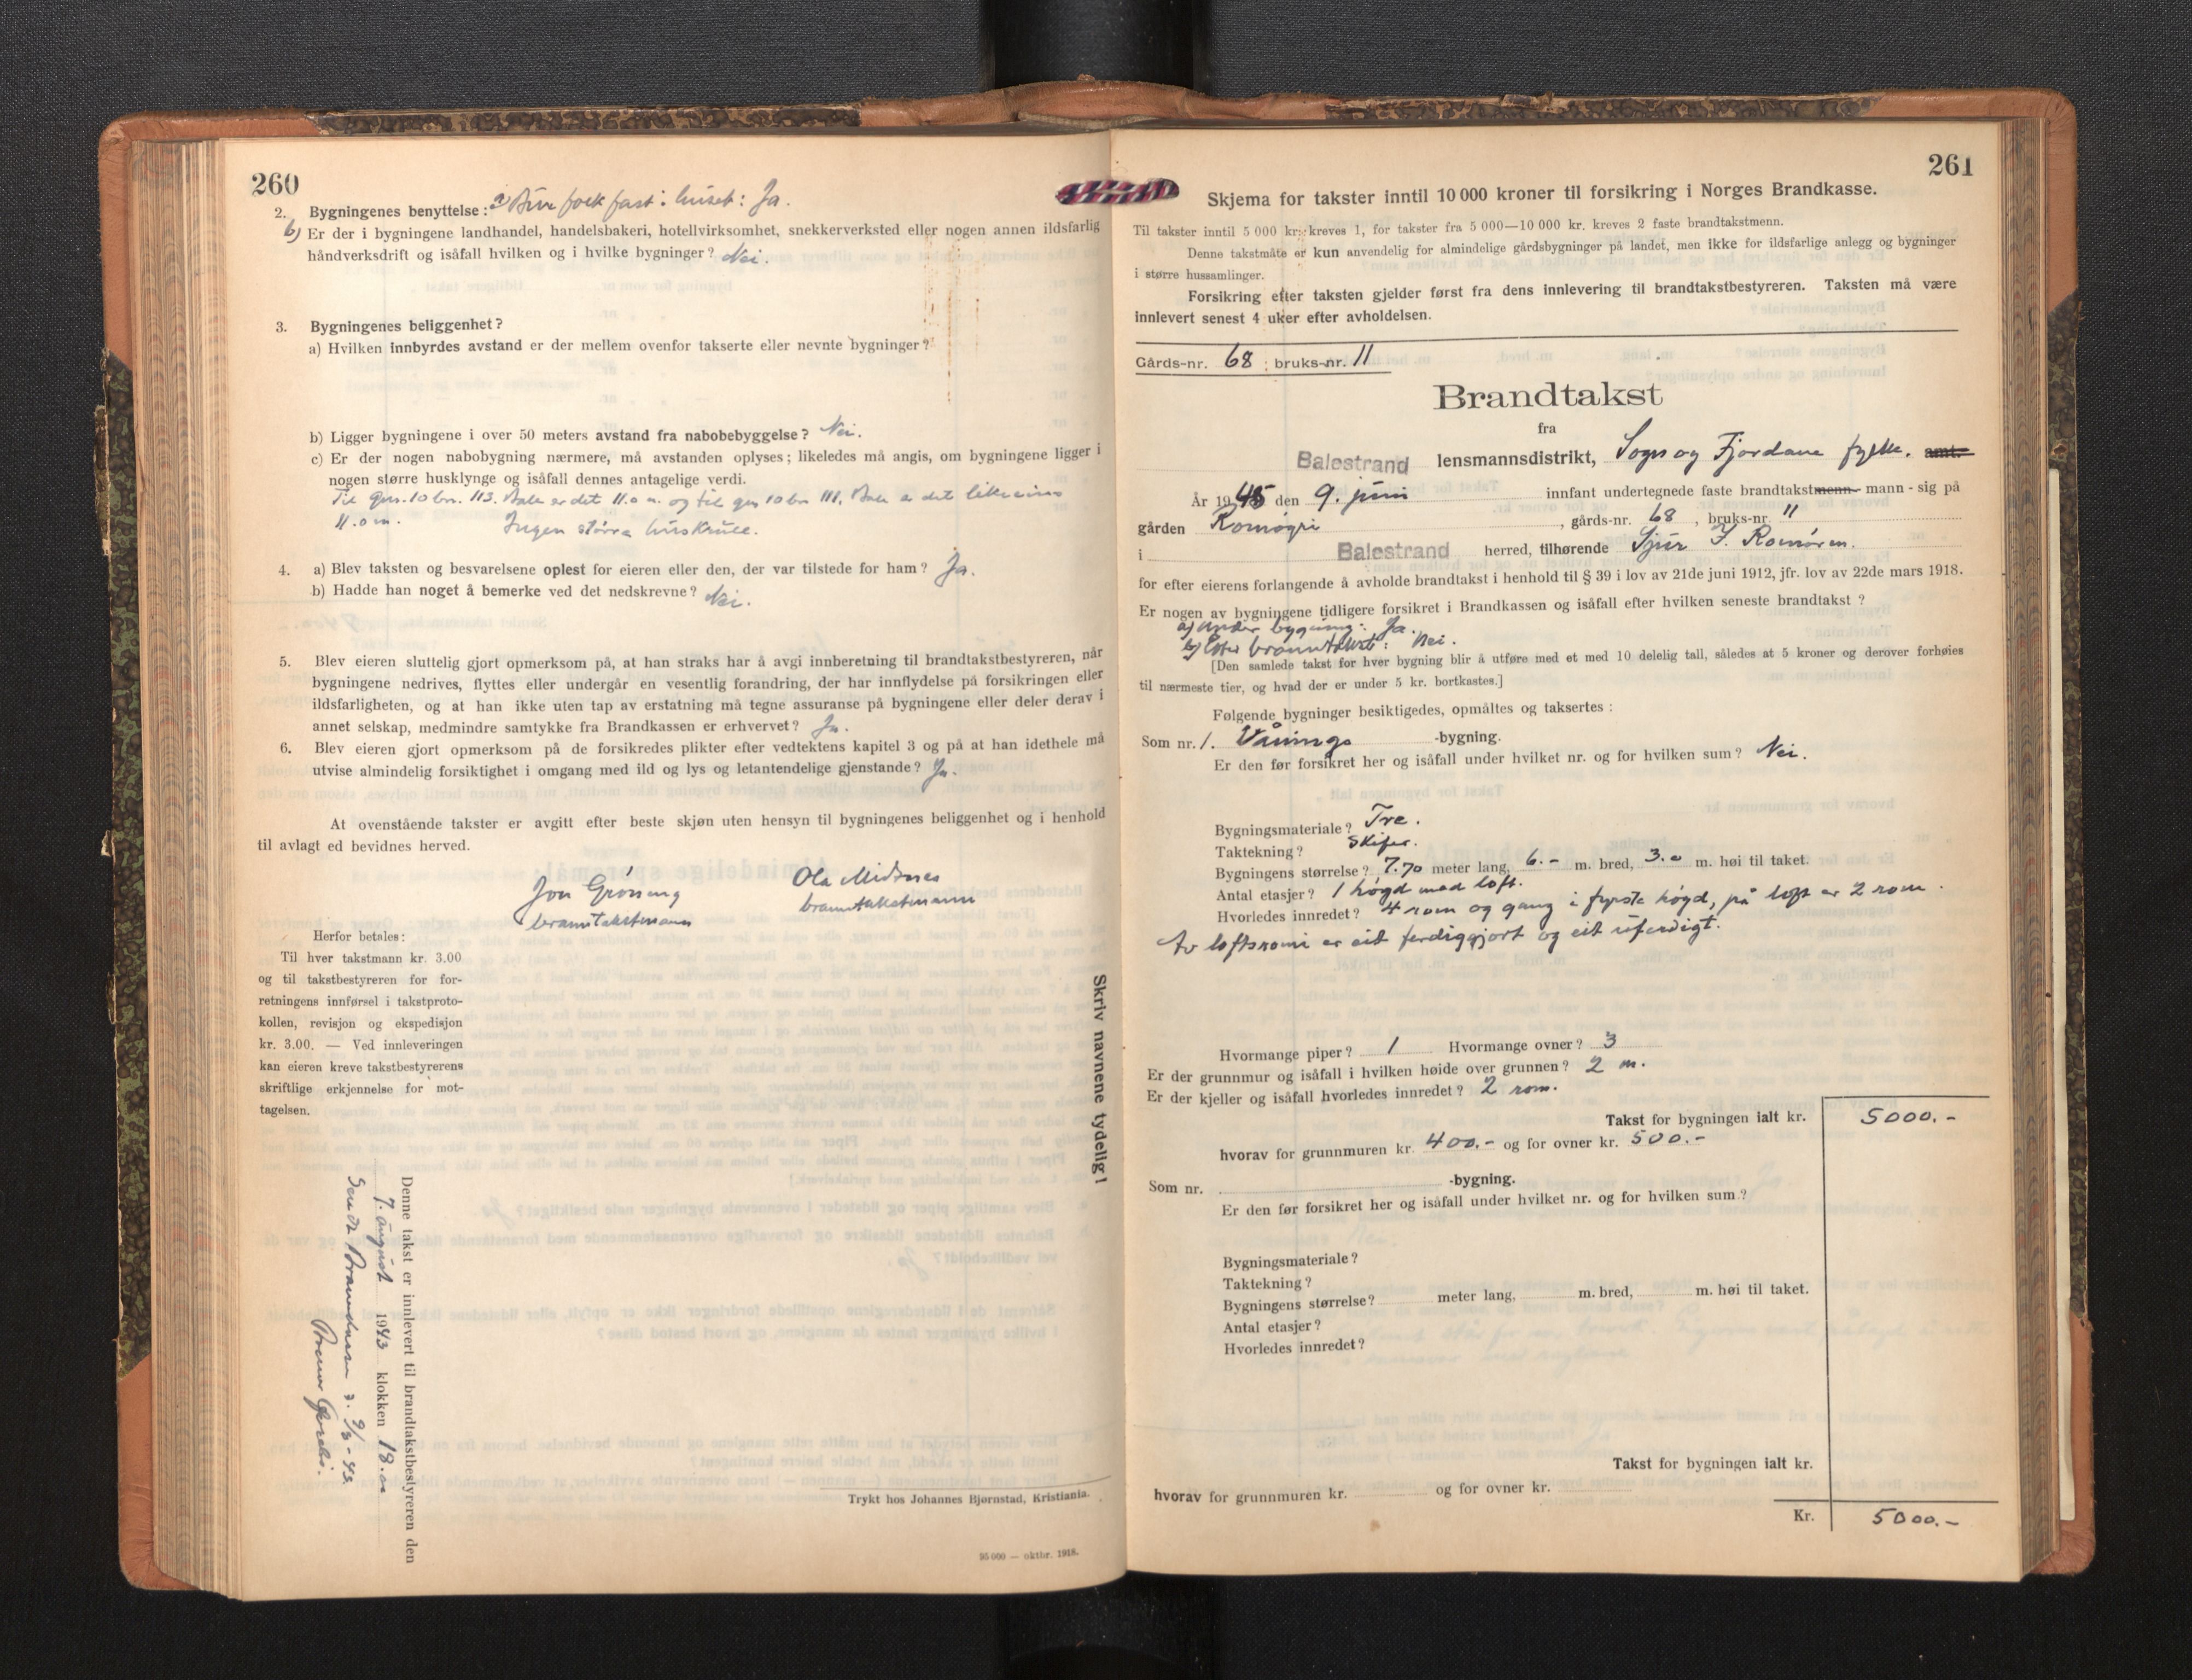 260
2. Bygningenes benyttelse: a) Bur folk fast i huset: Ja.
b) Er der i bygningene landhandel, handelsbakeri, hotellvirksomhet, snekkerverksted eller nogen annen ildsfarlig
håndverksdrift og isåfall hvilken og i hvilke bygninger? Nei.
3. Bygningenes beliggenhet?
a) Hvilken innbyrdes avstand er der mellem ovenfor takserte eller nevnte bygninger?
b) Ligger bygningene i over 50 meters avstand fra nabobebyggelse? Nei.
c) Er der nogen nabobygning nærmere, må avstanden oplyses; likeledes må angis, om bygningene ligger i
nogen større husklynge og isåfall dennes antagelige verdi.
Til gnr. 10 bnr. 113. Bale er det 11.0 m. og til gnr 10 bnr 111, Bale er det
11.0 m. Ingen større
4. a) Blev taksten og besvarelsene oplest for eieren eller den, der var tilstede for ham? Ja.
b) Hadde han noget å bemerke ved det nedskrevne? Nei.
5. Blev eieren sluttelig gjort opmerksom på, at han straks har å avgi innberetning til brandtakstbestyreren, når
bygningene nedrives, flyttes eller undergår en vesentlig forandring, der har innflydelse på forsikringen eller
ildsfarligheten, og at han ikke uten tap av erstatning må tegne assuranse på bygningene eller deler derav i
annet selskap, medmindre samtykke fra Brandkassen er erhvervet? Ja.
6. Blev eieren gjort opmerksom på de forsikredes plikter efter vedtektens kapitel 3 og på at han idethele må
utvise almindelig forsiktighet i omgang med ild og lys og letantendelige gjenstande? Ja.
At ovenstående takster er avgitt efter beste skjøn uten hensyn til bygningenes beliggenhet og i henhold
til avlagt ed bevidnes herved.
Jon Grøning Ola Midtnes
branntakstmann branntakstmann
Herfor betales:
Til hver takstmann kr. 3.00
og til takstbestyreren for for-
retningens innførsel i takstproto-
kollen, revisjon og ekspedisjon
kr. 3.00. — Ved innleveringen
kan eieren kreve takstbestyrerens
skriftlige erkjennelse for mot-
tagelsen.
Skriv navnene tydelig!
Denne takst er innlevert til brandtakstbestyreren den
7. august 1943 klokken 18.00
Sendt
Trykt hos Johannes Bjørnstad, Kristiania.
95 000 — oktbr. 1918.
261
Skjema for takster inntil 10 000 kroner til forsikring i Norges Brandkasse.
Til takster inntil 5 000 kr. kreves 1, for takster fra 5 000—10 000 kr. kreves 2 faste brandtakstmenn.
Denne takstmåte er kun anvendelig for almindelige gårdsbygninger på landet, men ikke for ildsfarlige anlegg og bygninger
i større hussamlinger.
Forsikring efter taksten gjelder først fra dens innlevering til brandtakstbestyreren. Taksten må være
innlevert senest 4 uker efter avholdelsen.
Gårds-nr. 68 bruks-nr. 11
Brandtakst
fra
Balestrand lensmannsdistrikt, Sogn og Fjordane fylke. amt.
År 1945 den 9. juni innfant undertegnede faste brandtakstmenn- mann - sig på
gården Romøyri, gårds-nr. 68, bruks-nr. 11
i Balestrand herred, tilhørende Sjur I. Romøren.
for efter eierens forlangende å avholde brandtakst i henhold til § 39 i lov av 21de juni 1912, jfr. lov av 22de mars 1918.
Er nogen av bygningene tidligere forsikret i Brandkassen og isåfall efter hvilken seneste brandtakst?
a) under bygning: Ja.
b) Etter branntakst: Nei.
[Den samlede takst for hver bygning blir å utføre med et med 10 delelig tall, således at 5 kroner og derover forhøies
til nærmeste tier, og hvad der er under 5 kr. bortkastes.]
Følgende bygninger besiktigedes, opmåltes og taksertes:
Som nr. 1. Vånings -bygning.
Er den før forsikret her og isåfall under hvilket nr. og for hvilken sum? Nei.
Bygningsmateriale? Tre.
Taktekning? Skifer.
Bygningens størrelse? 7.70 meter lang, 6.- m. bred, 3.0 m. høi til taket.
Antal etasjer? 1 høgd med loft.
Hvorledes innredet? 4 rom og gang i fyrste høgd, på loft er 2 rom.
Av loftsromi er eit ferdiggjort og eit uferdigt.
Hvormange piper? 1 Hvormange ovner? 3
Er der grunnmur og isåfall i hvilken høide over grunnen? 2 m.
Er der kjeller og isåfall hvorledes innredet? 2 rom.
Takst for bygningen ialt kr. 5000.-
hvorav for grunnmuren kr. 400.- og for ovner kr. 500.-
Som nr. -bygning.
Er den før forsikret her og isåfall under hvilket nr. og for hvilken sum?
Bygningsmateriale?
Taktekning?
Bygningens størrelse? meter lang, m. bred, m. høi til taket.
Antal etasjer?
Hvorledes innredet?
Takst for bygningen ialt kr.
hvorav for grunnmuren kr. og for ovner kr.
Kr. 5000.-